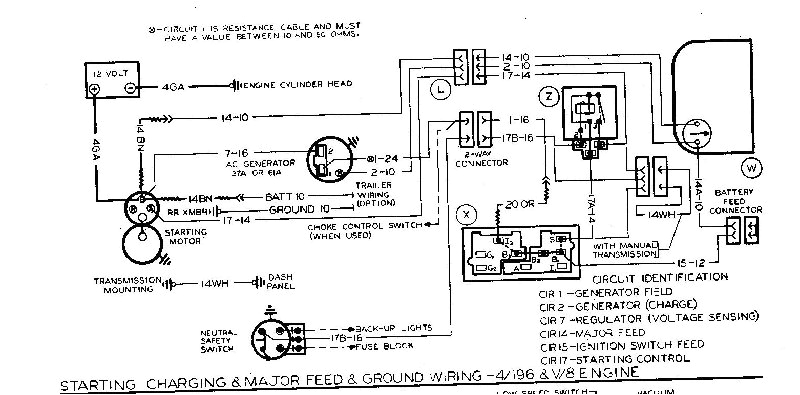 ⊗-CIRCUIT 1 IS RESISTANCE CABLE AND MUST
HAVE A VALUE BETWEEN 10 AND OHMS.
12 VOLT
+
-
4GA
ENGINE CYLINDER HEAD
4GA
14BN
14-10
L
14-10
2-10
17-14
Z
W
7-16
AC GENERATOR
37A OR 61A
2
1
⊗1-24
2-10
1-16
17B-16
2-WAY
CONNECTOR
14BN
BATT 10
RR XMBR
GROUND 10
17-14
TRAILER
WIRING
(OPTION)
CHOKE CONTROL SWITCH
(WHEN USED)
STARTING
MOTOR
X
20 OR
17A-14
14WH
14A-10
BATTERY
FEED
CONNECTOR
WITH MANUAL
TRANSMISSION
15-12
S
A
TRANSMISSION
MOUNTING
14WH
DASH
PANEL
NEUTRAL
SAFETY
SWITCH
BACK-UP LIGHTS
17B-16
FUSE BLOCK
CIRCUIT IDENTIFICATION
CIR 1 -GENERATOR FIELD
CIR 2 -GENERATOR (CHARGE)
CIR 7 -REGULATOR (VOLTAGE SENSING)
CIR 14 -MAJOR FEED
CIR 15 -IGNITION SWITCH FEED
CIR 17 -STARTING CONTROL
STARTING CHARGING & MAJOR FEED & GROUND WIRING -4/196 & V/8 ENGINE
LOW SPEED SWITCH
VACUUM